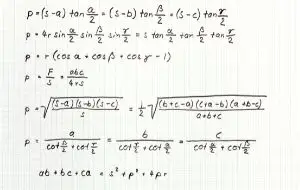 p = (s-a) tan α/2 = (s-b) tan β/2 = (s-c) tan γ/2
p = 4r sin α/2 sin β/2 sin γ/2 = s tan α/2 tan β/2 tan γ/2
p = r (cos α + cos β + cos γ - 1)
p = F/s = abc/4rs
p = √((s-a)(s-b)(s-c)/s) = 1/2 √((b+c-a)(c+a-b)(a+b-c)/(a+b+c))
p = a/(cot β/2 + cot γ/2) = b/(cot γ/2 + cot α/2) = c/(cot α/2 + cot β/2)
ab + bc + ca = s² + p² + 4pr